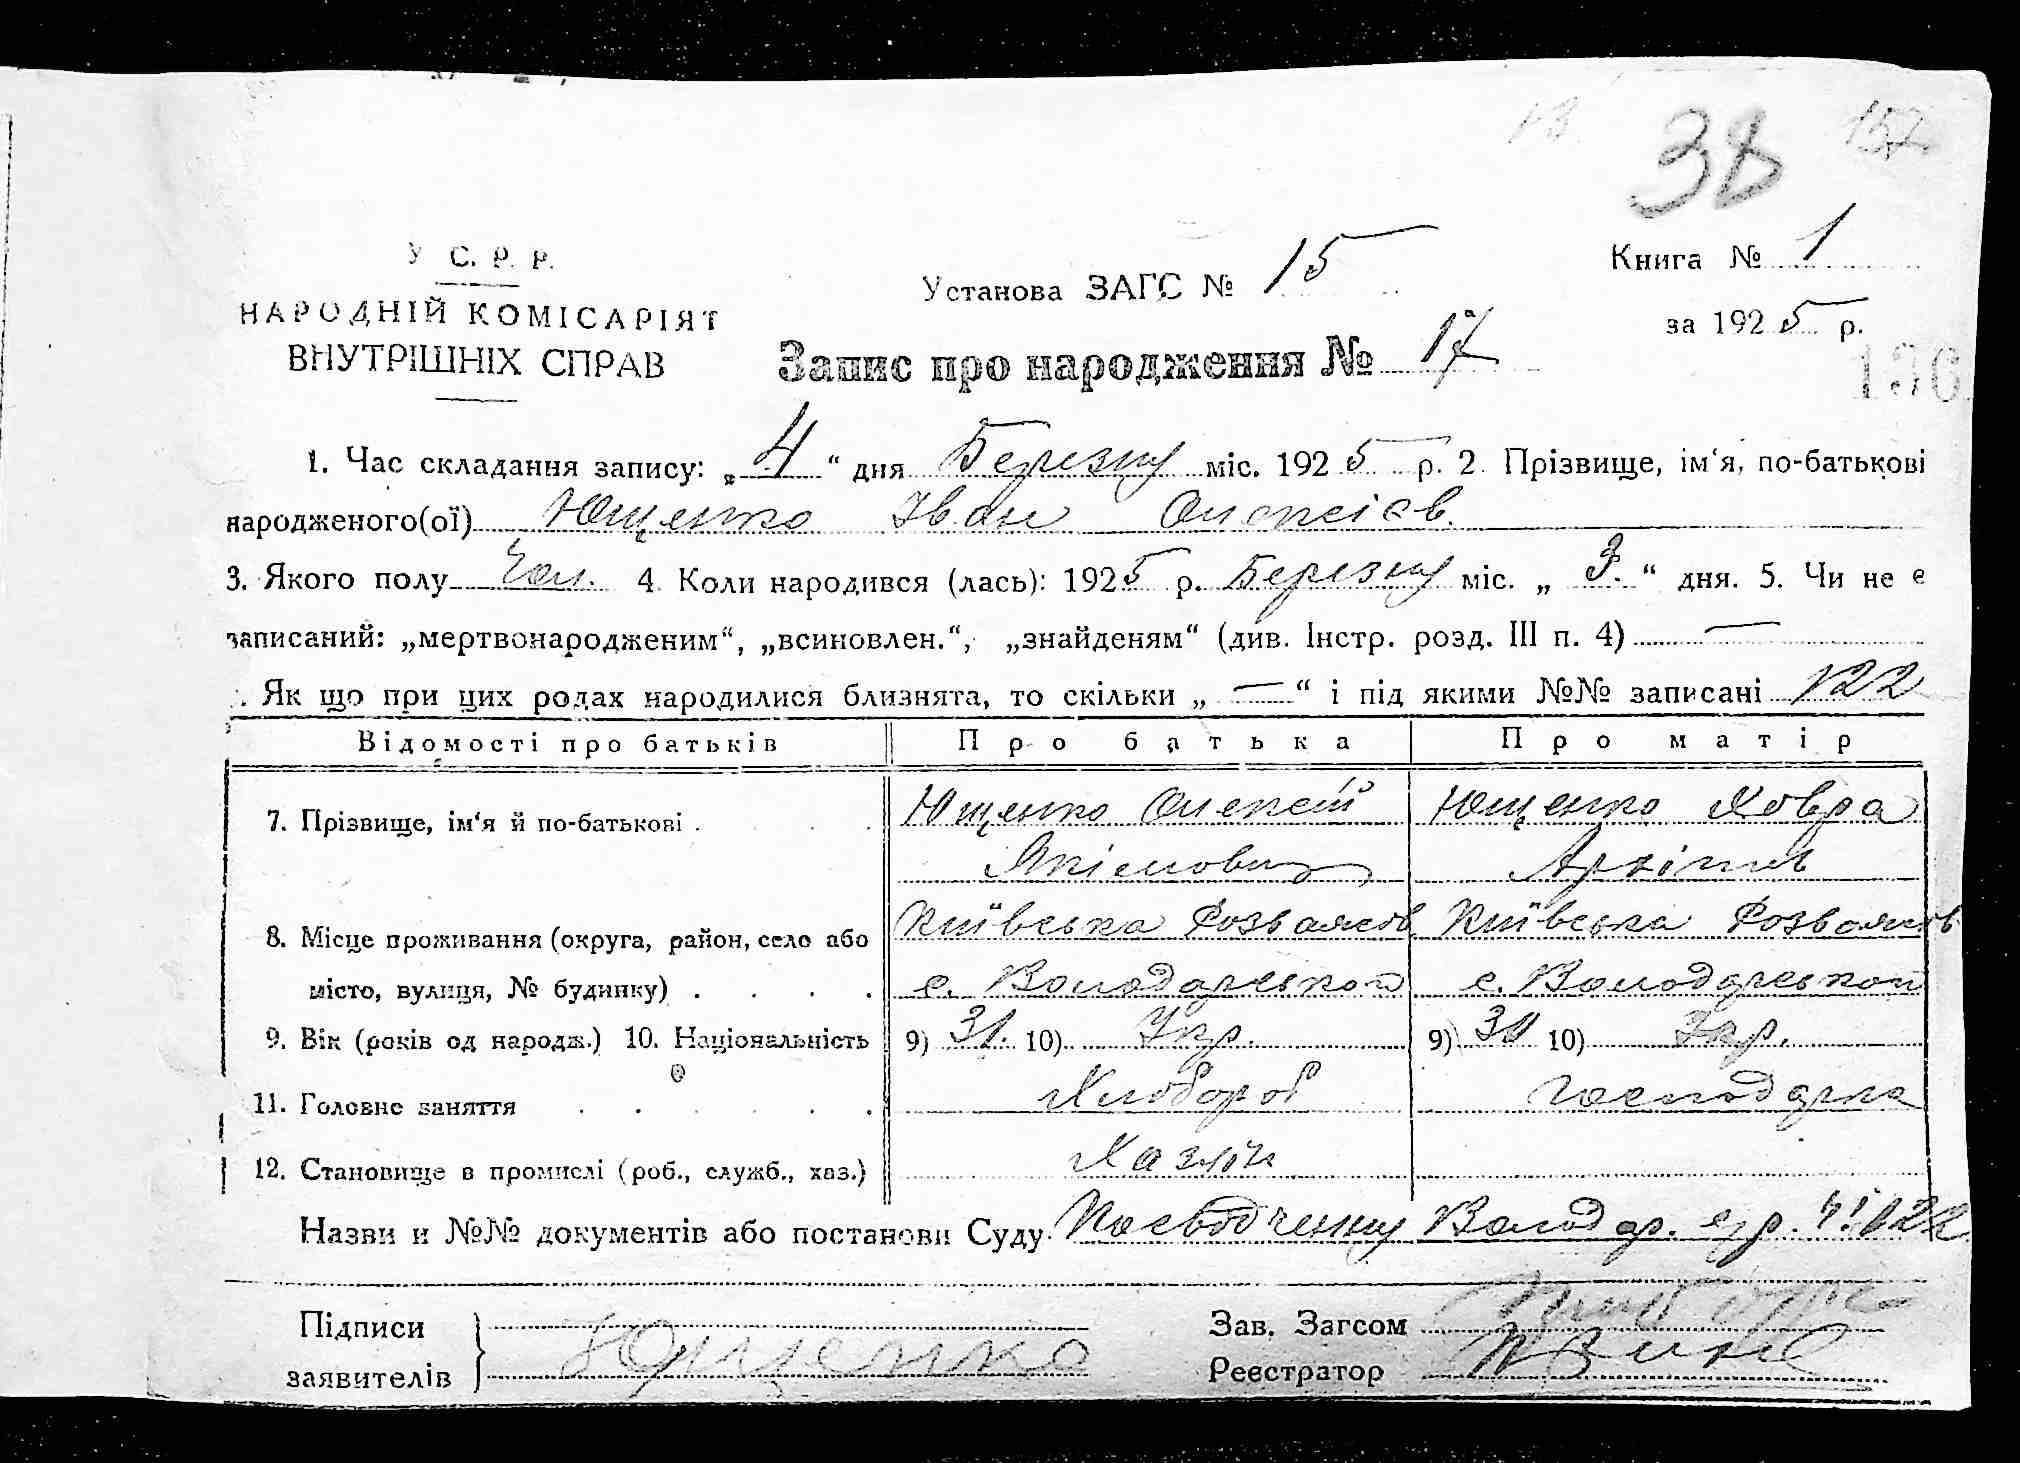 38 157
У С. Р. Р.
НАРОДНІЙ КОМІСАРІЯТ
ВНУТРІШНІХ СПРАВ
Установа ЗАГС № 15
Книга № 1
за 1925 р.
Запис про народження № 17
1. Час складання запису: „4“ дня Березня міс. 1925 р. 2. Прізвище, ім‘я, по-батькові
народженого(ої) Ющенко Іван Олексієв.
3. Якого полу Чол. 4. Коли народився (лась): 1925 р. Березня міс. „3.“ дня. 5. Чи не є
записаний: „мертвонародженим“, „всиновлен.“, „знайденям“ (див. Інстр. розд. III п. 4) —
. Як що при цих родах народилися близнята, то скільки „—“ і під якими №№ записані 122
Відомості про батьків Про батька Про матір
7. Прізвище, ім‘я й по-батькові . Ющенко Олексій Ющенко Ховра
Якімович Архіпів
8. Місце проживання (округа, район, село або Київська Розважев Київська Розважев
місто, вулиця, № будинку) . . . . с. Володарської с. Володарської
9. Вік (років од народж.) 10. Національність 9) 31. 10) Укр. 9) 30 10) Укр.
11. Головне заняття Хлібороб господарка
12. Становище в промислі (роб., служб., хаз.) Хазяїн
Назви и №№ документів або постанови Суду Посвідчення Володар. с/р. Ч! 122
Підписи
заявителів Ющенко
Зав. Загсом
Реєстратор